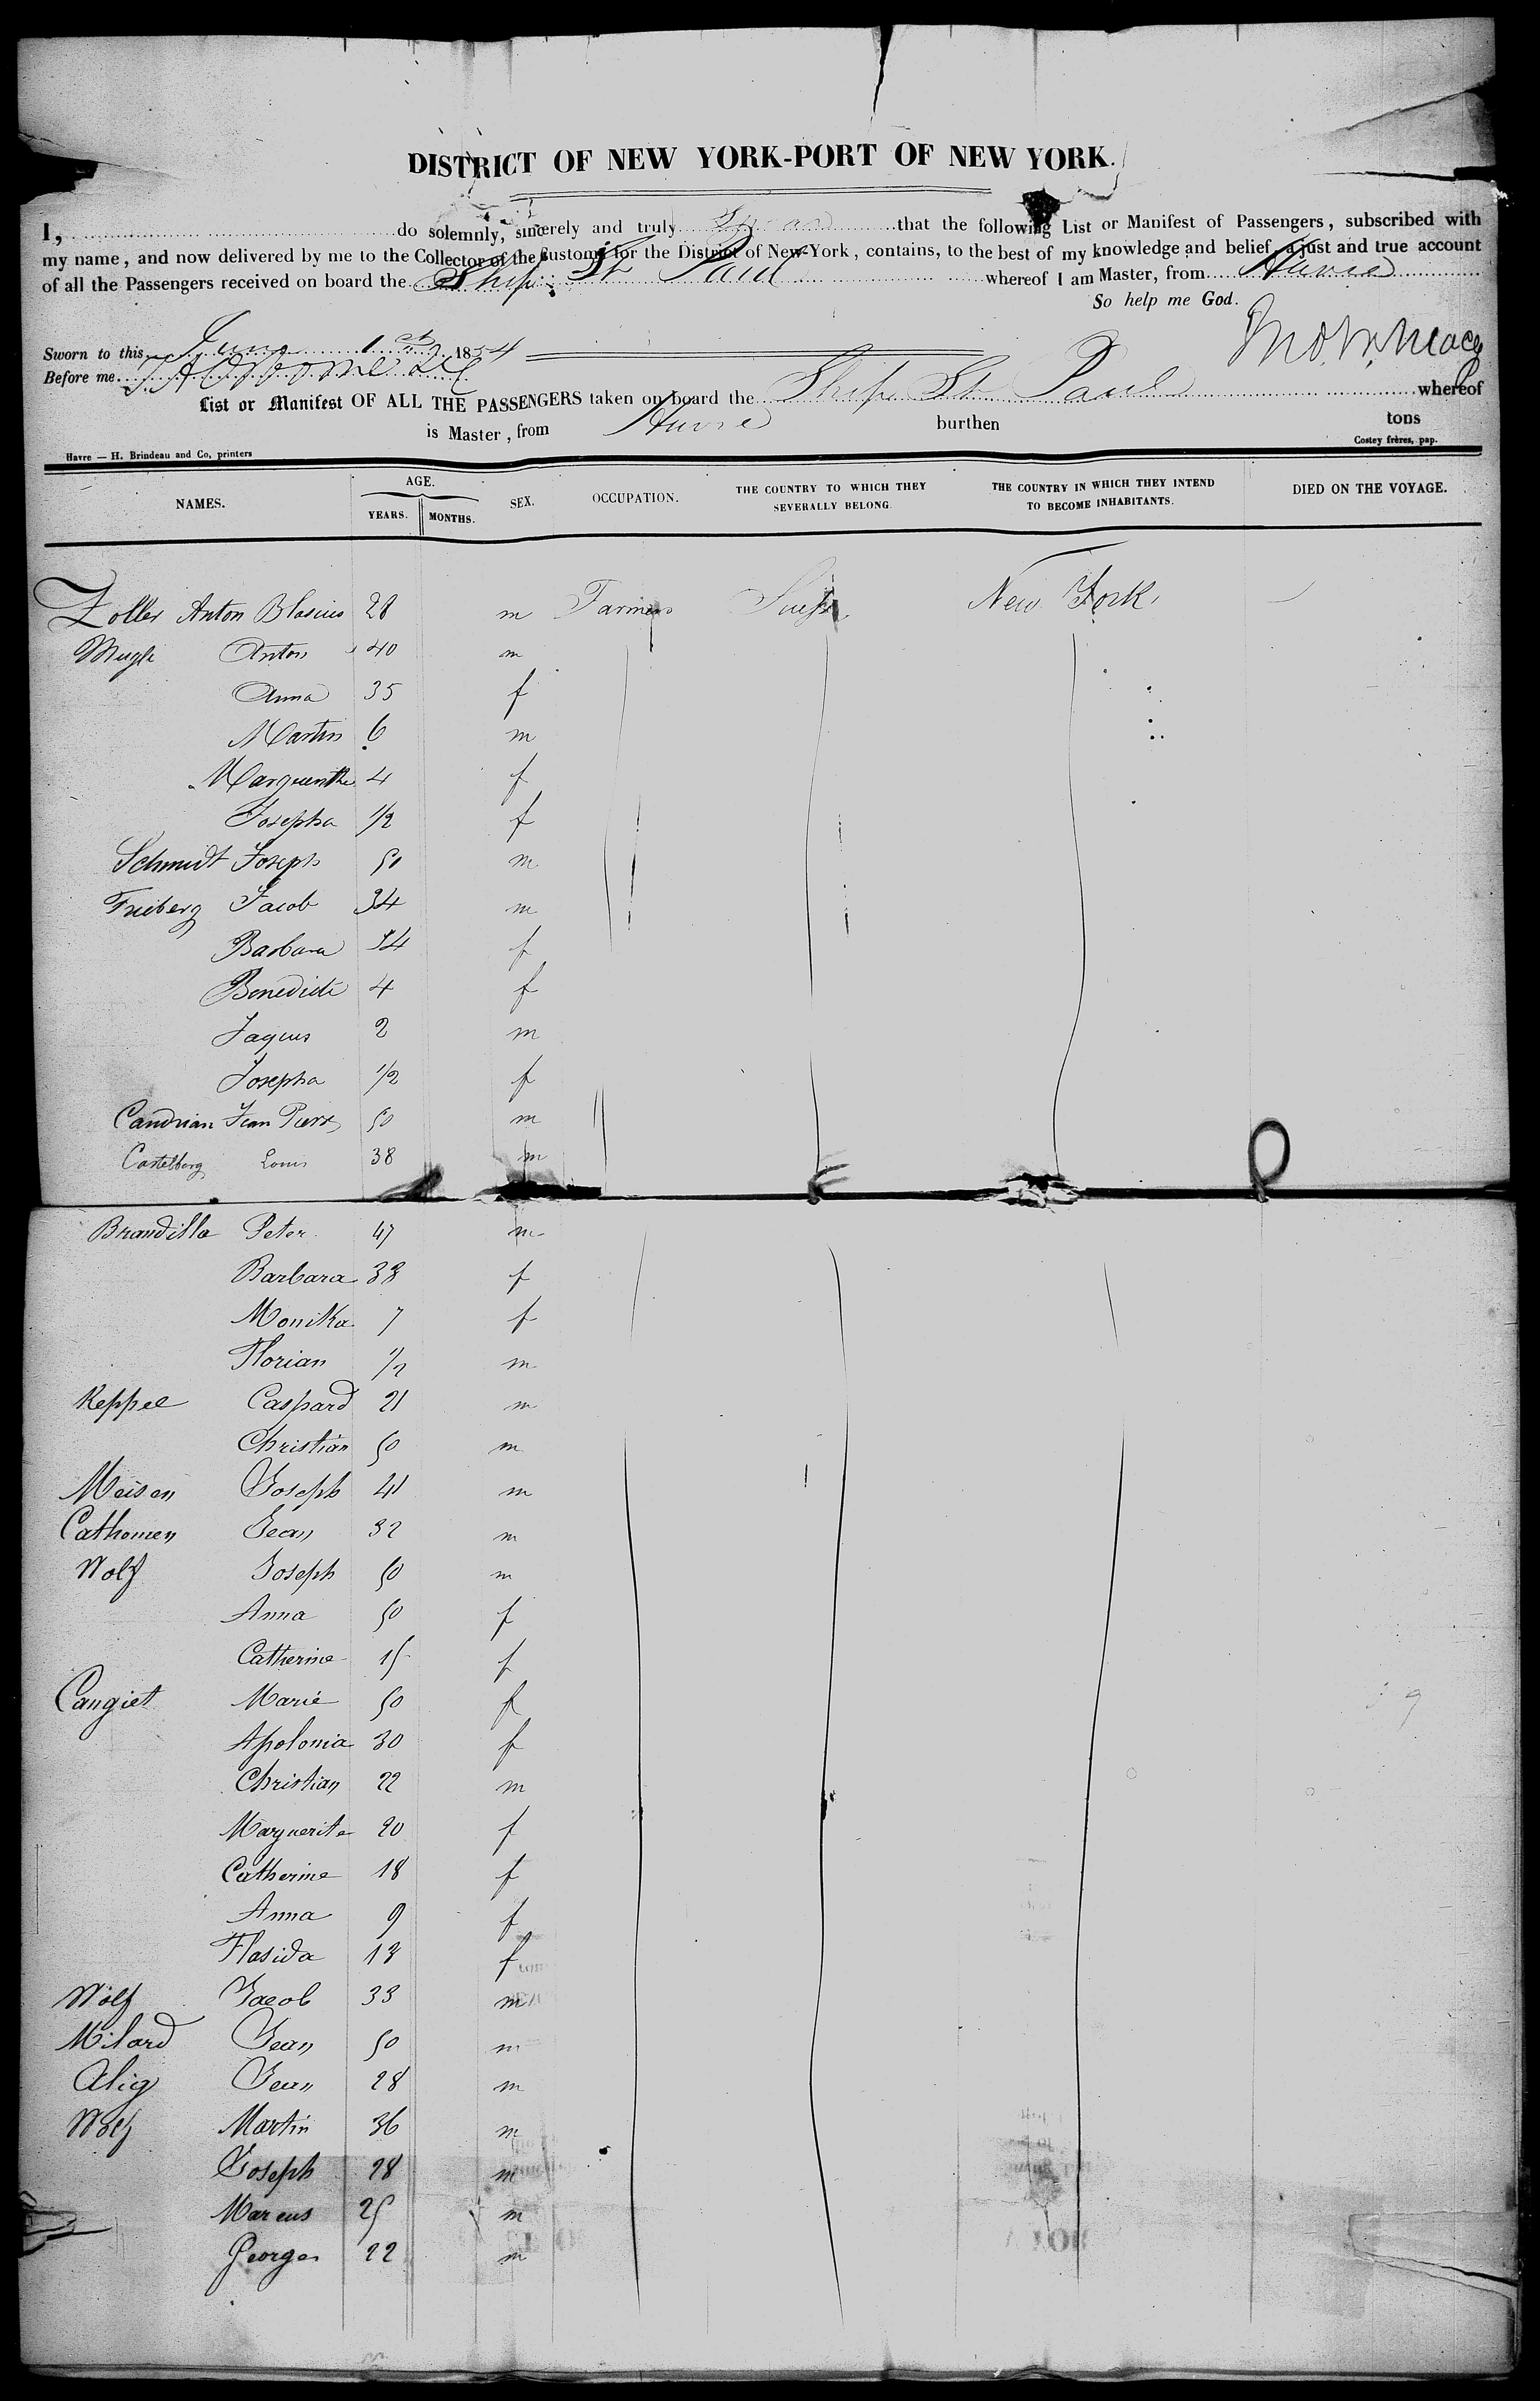 DISTRICT OF NEW YORK-PORT OF NEW YORK.
I, do solemnly, sincerely and truly Swear that the following List or Manifest of Passengers, subscribed with
my name, and now delivered by me to the Collector of the Customs for the District of New-York, contains, to the best of my knowledge and belief, a just and true account
of all the Passengers received on board the Ship St Paul whereof I am Master, from Havre
So help me God.
Sworn to this June 1st 1854
Before me
List or Manifest OF ALL THE PASSENGERS taken on board the Ship St Paul whereof
is Master, from Havre burthen tons
Havre — H. Brindeau and Co, printers Costey frères, pap.
NAMES. AGE. YEARS. MONTHS. SEX. OCCUPATION. THE COUNTRY TO WHICH THEY SEVERALLY BELONG. THE COUNTRY IN WHICH THEY INTEND TO BECOME INHABITANTS. DIED ON THE VOYAGE.
Zoller Anton Blasius 28 m Farmers New York
Anton 40 m
Anna 35 f
Martin 6 m
4 f
Josepha 1/2 f
Schmidt Joseph 50 m
Frieberg Jacob 34 m
Barbara 34 f
4 f
Jaques 2 m
Josepha 1/2 f
Candrian Jean Pierre 50 m
Castelberg Louis 38 m
Brandilla Peter 47 m
Barbara 38 f
Monika 7 f
Florian 1/2 m
Keppel Caspard 21 m
Christian 50 m
Meisen Joseph 41 m
Cathomen Jean 32 m
Wolf Joseph 50 m
Anna 50 f
Catherine 15 f
Cangiet Marie 50 f
Apolonia 30 f
Christian 22 m
Marguerite 20 f
Catherine 18 f
Anna 9 f
Plasida 13 f
Wolf Jacob 33 m
Milard Jean 50 m
Alig Jean 28 m
Wolf Martin 36 m
Joseph 28 m
Marcus 25 m
George 22 m